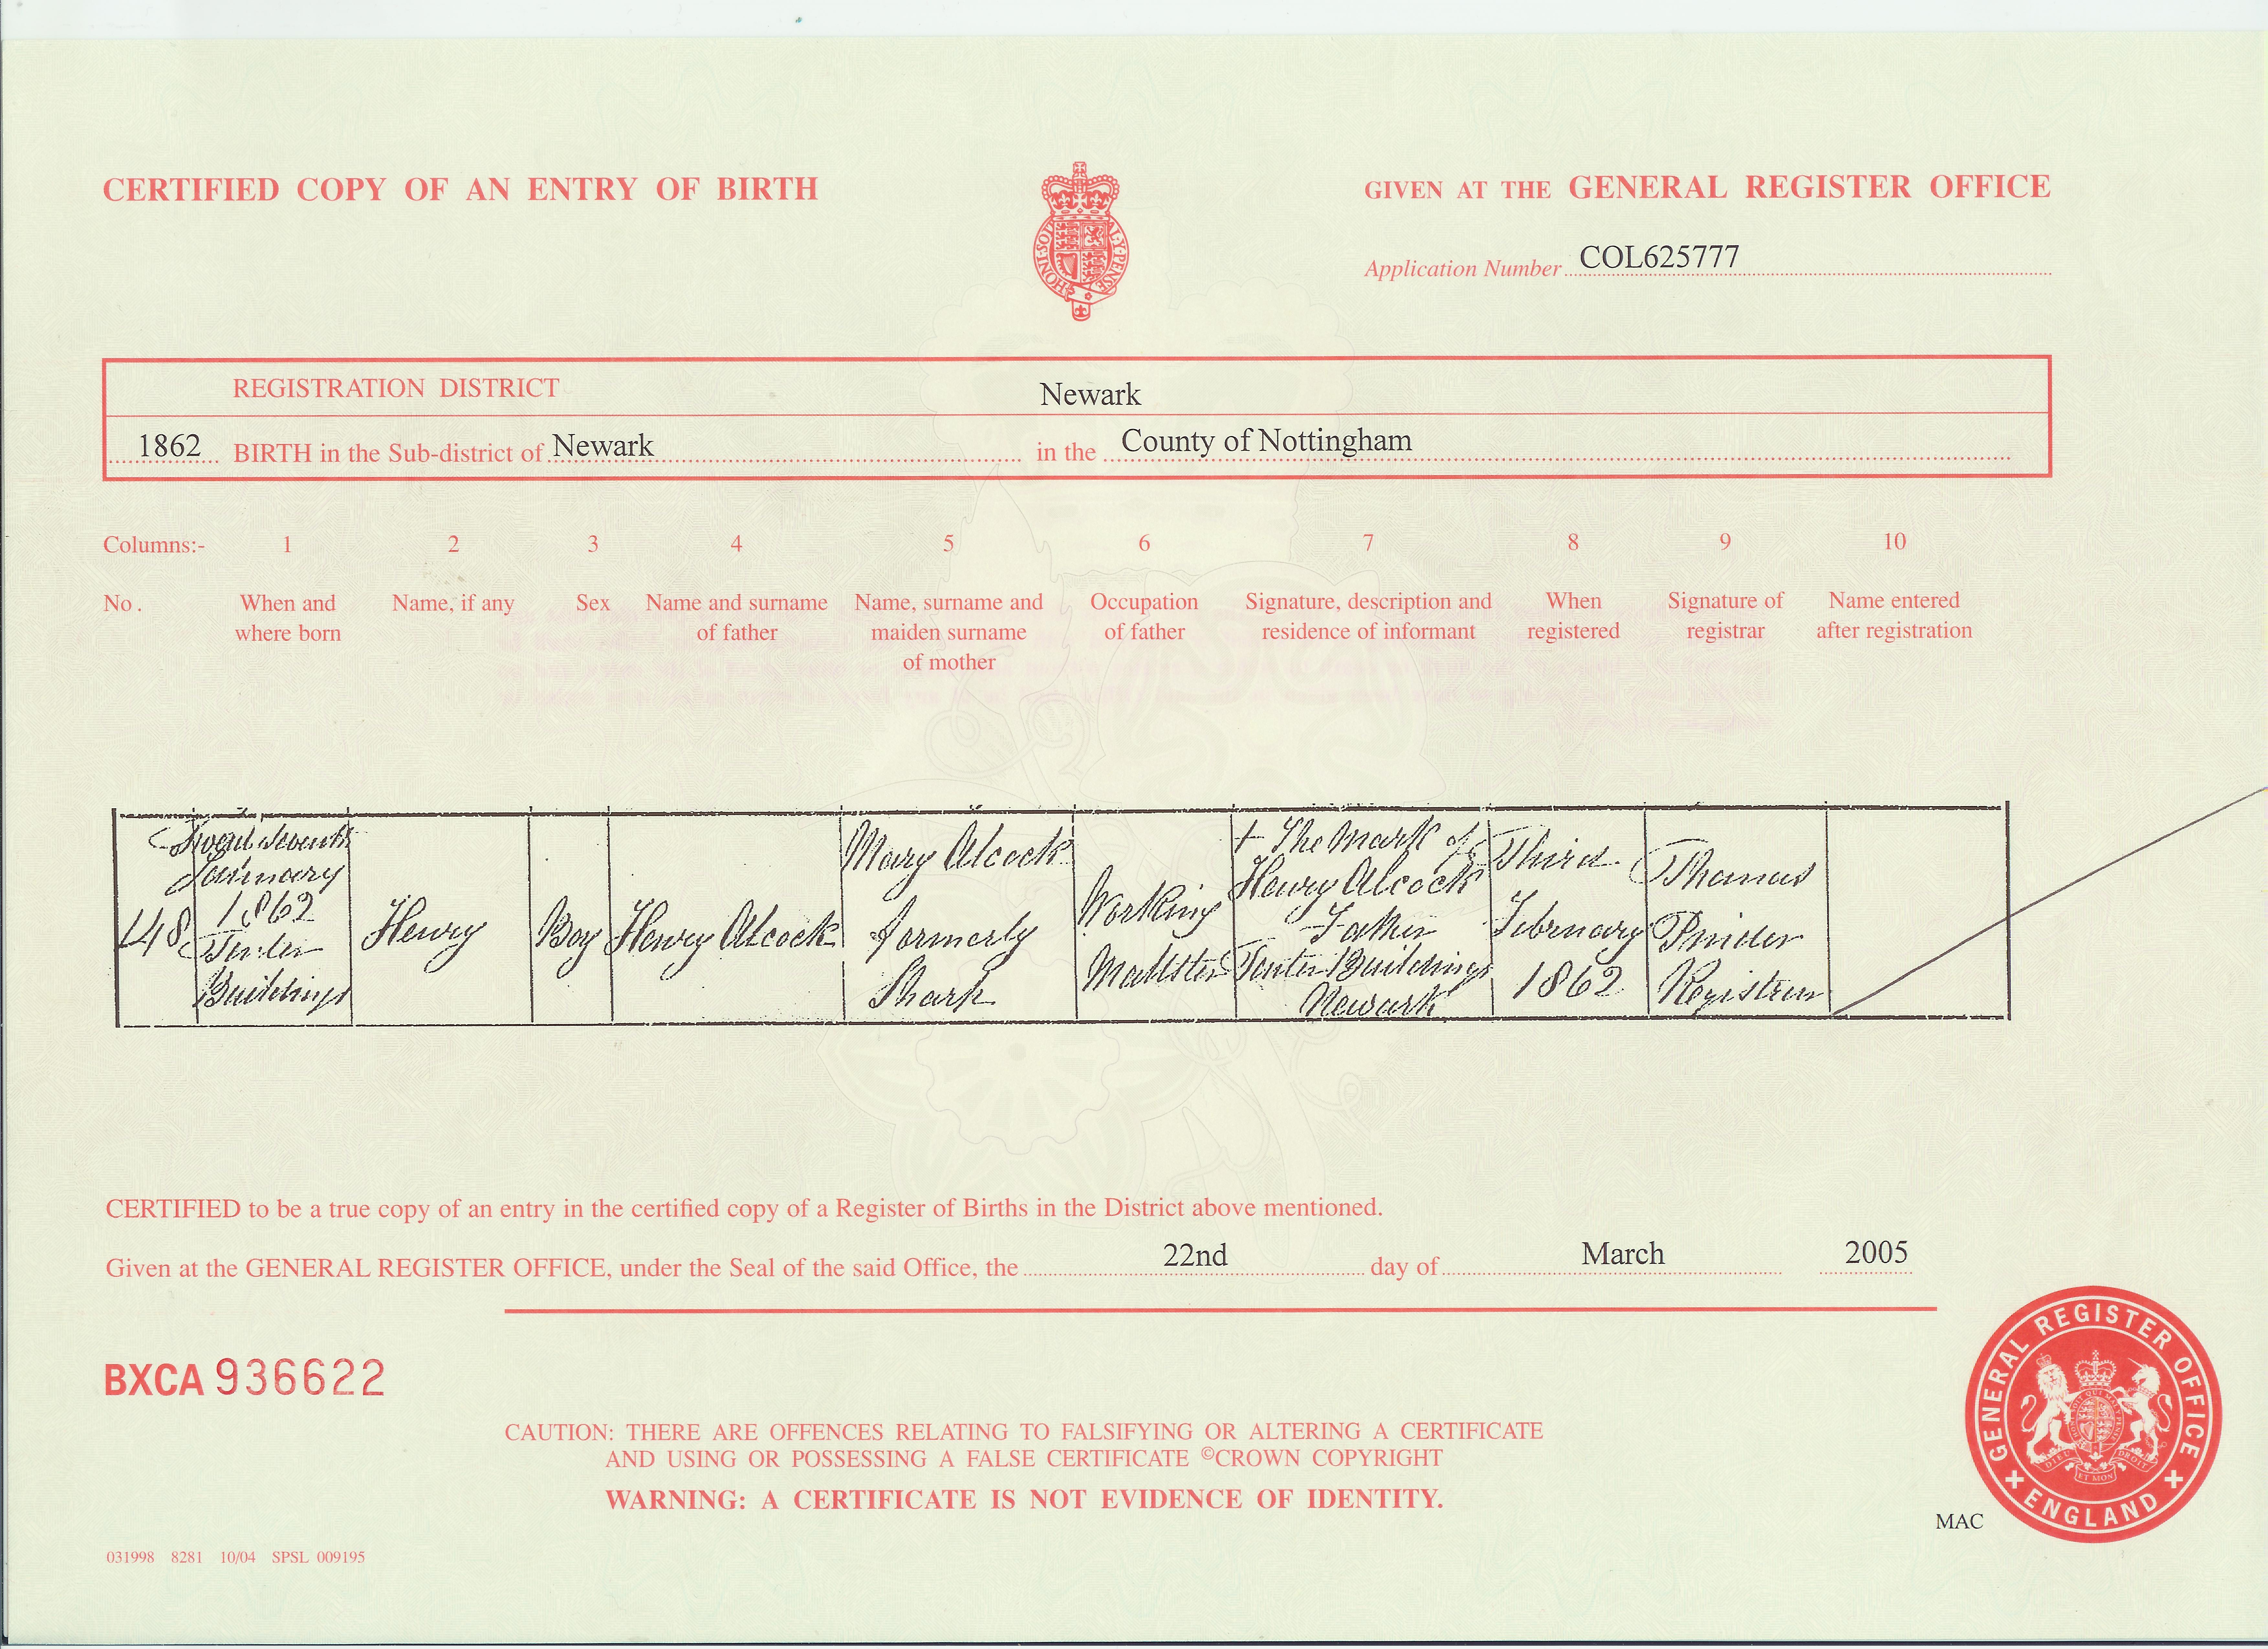 CERTIFIED COPY OF AN ENTRY OF BIRTH
GIVEN AT THE GENERAL REGISTER OFFICE
Application Number COL625777
REGISTRATION DISTRICT Newark
1862 BIRTH in the Sub-district of Newark in the County of Nottingham
Columns:- 1 2 3 4 5 6 7 8 9 10
No. When and where born
Name, if any
Sex
Name and surname of father
Name, surname and maiden surname of mother
Occupation of father
Signature, description and residence of informant
When registered
Signature of registrar
Name entered after registration
148
Seventh
January
1862
Tenter
Buildings
Henry
Boy
Henry Alcock
Mary Alcock
formerly
Shark
Working
Maltster
+ The Mark of
Henry Alcock
Father
Tenter Buildings
Newark
Third
February
1862
Thomas
Pinder
Registrar
CERTIFIED to be a true copy of an entry in the certified copy of a Register of Births in the District above mentioned.
Given at the GENERAL REGISTER OFFICE, under the Seal of the said Office, the 22nd day of March 2005
BXCA 936622
CAUTION: THERE ARE OFFENCES RELATING TO FALSIFYING OR ALTERING A CERTIFICATE
AND USING OR POSSESSING A FALSE CERTIFICATE ©CROWN COPYRIGHT
WARNING: A CERTIFICATE IS NOT EVIDENCE OF IDENTITY.
GENERAL REGISTER OFFICE
ENGLAND
MAC
031998 8281 10/04 SPSL 009195